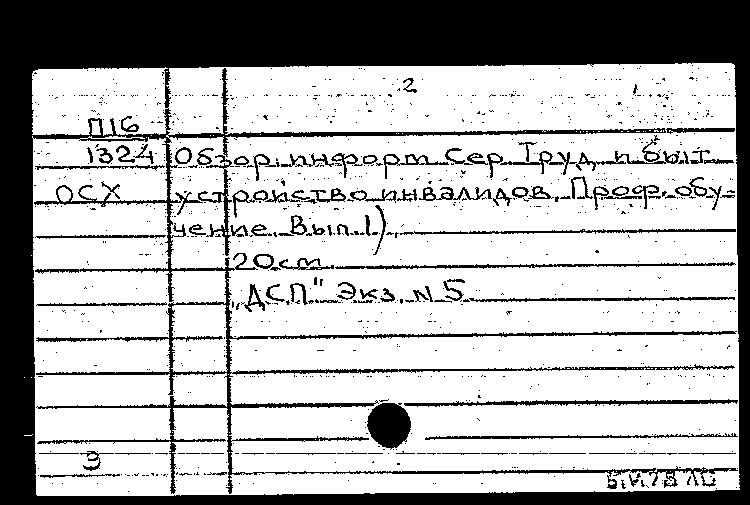 2
П16
1324 Обзор. информ. Сер. Труд. и быт.
ОСХ устройство инвалидов. Проф. обу-
чение. Вып. 1).
20 см.
„ДСП" Экз. N 5.
9